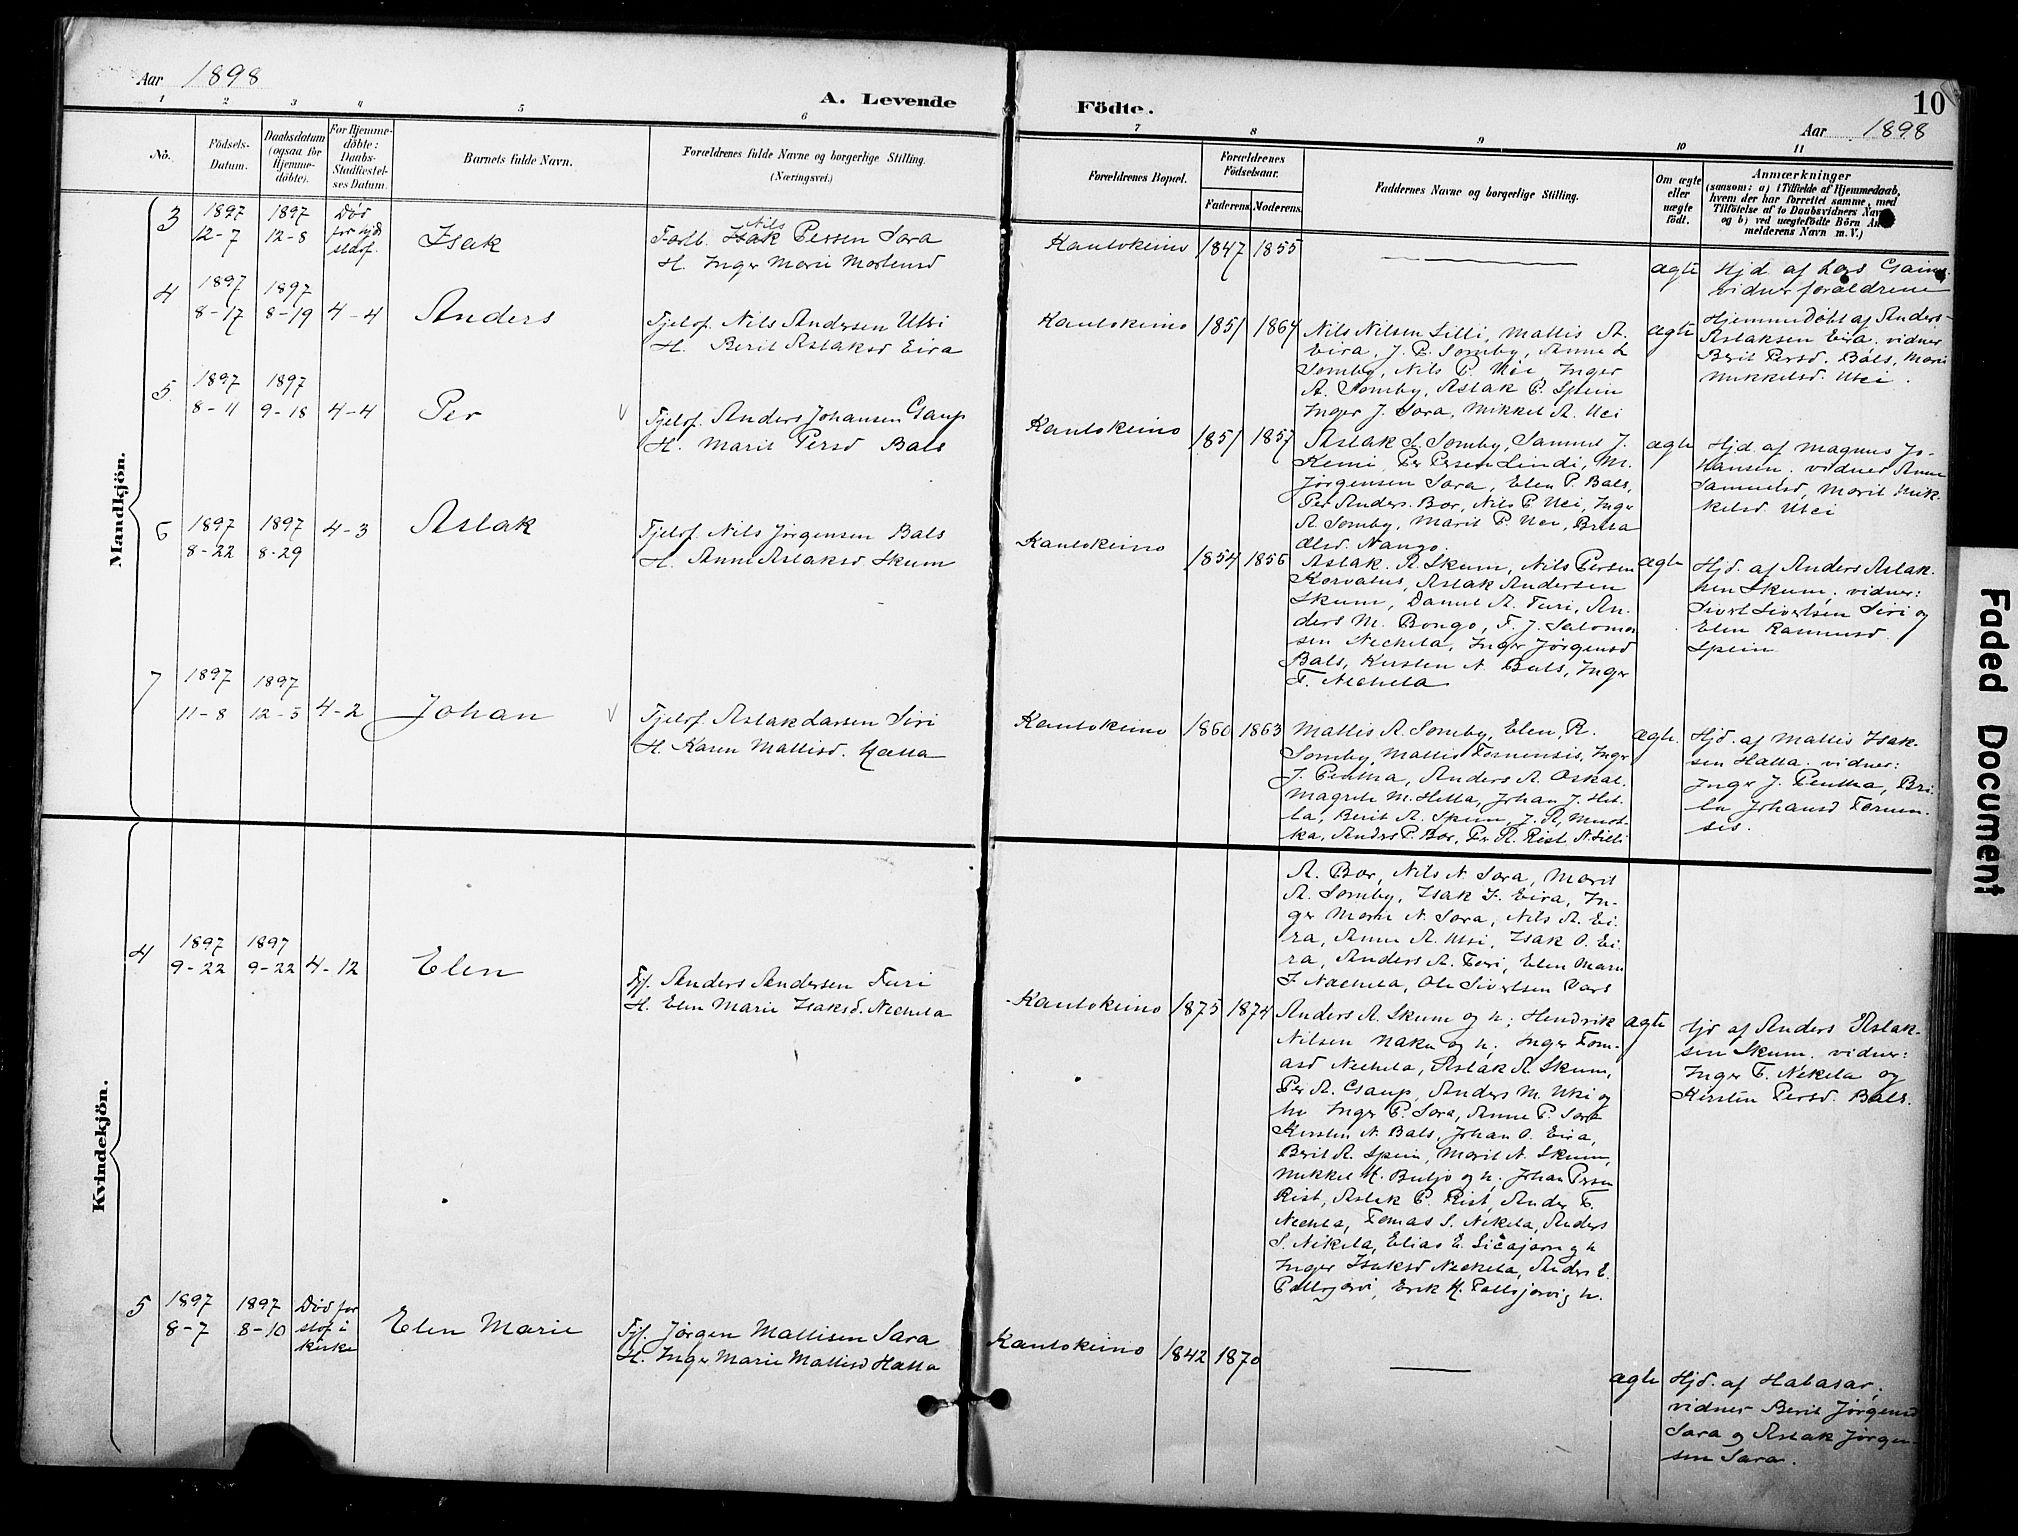 Aar 1898
A. Levende
Födte.
10
Aar 1898
1
2
3
4
5
6
7
8
9
10
11
No.
Födsels-
Datum.
Daabsdatum
(ogsaa for
Hjemme-
döbte).
For Hjemme-
döbte:
Daabs-
Stadfæstel-
ses Datum.
Barnets fulde Navn.
Forældrenes fulde Navne og borgerlige Stilling.
(Næringsvei.)
Forældrenes Bopæl.
Forældrenes
Födselsaar.
Faderens.
Moderens.
Faddernes Navne og borgerlige Stilling.
Om ægte
eller
uægte
födt.
Anmærkninger
(saasom: a) i Tilfælde af Hjemmedaab,
hvem der har forrettet samme, med
Tilföielse af to Daabsvidners Navne
og b) ved uægtefödte Börn An-
melderens Navn m. V.)
Mandkjön.
3
1897
12-7
1897
12-8
Død
før
stadf.
Isak
Nils
Isak Persen Sara
H. Inger Marie Mortensd
Kautokeino
1847
1855
ægte
Hjd. af Lars Gaino.
vidner forældrene
4
1897
8-17
1897
8-19
4-4
Anders
Fjelof. Nils Andersen Utsi
H. Berit Aslaksd Eira
Kautokeino
1851
1864
Nils Nilsen Silli, Mattis A.
Eira, J. P. Somby, Anne L
Somby, Nils P. Uci, Inger
A. Somby, Aslak P. Spein
Inger J. Sara, Mikkel A. Uci
ægte
Hjemmedøbt af Anders
Aslaksen Eira. vidner
Berit Persd. Bals, Marit
Mikkelsd. Utsi.
5
1897
8-11
1897
9-18
4-4
Per
Fjelof. Anders Johansen Gaup
H. Marit Persd Bals
Kautokeino
1851
1857
Aslak S. Somby, Samuel J.
Kemi, Per Persen Lindi, M.
Jørgensen Sara, Elen P. Bals,
Per Anders. Bor, Nils P. Uci, Inger
A. Somby, Marit P. Uci, Brita
Olsd. Nango.
ægte
Hjd. af Magnus Jo-
hansen. vidner Anne
Samuelsd, Marit Mik-
kelsd Utsi
6
1897
8-22
1897
8-29
4-3
Aslak
Fjelof. Nils Jørgensen Bals
H. Anne Aslaksd. Skum
Kautokeino
1854
1856
Aslak. A. Skum, Nils Persen
Korvatus, Aslak Andersen
Skum, Daniel A. Turi, An-
ders M. Bongo, T. J. Salomo
sen Neckela, Inger Jørgensd
Bals, Kirsten N. Bals, Inger
T. Neckela
ægte
Hjd. af Anders Aslak-
sen Skum. vidner:
Sivert Sivertsen Siri og
Elen Rasmusd.
Spein
7
1897
11-8
1897
12-5
4-2
Johan
Fjelof. Aslak Larsen Siri
H. Karen Mattisd. Hætta
Kautokeino
1860
1863
Mattis A. Somby, Elen R.
Somby, Mattis Fornensis, Inger
J. Pentha, Anders A. Oskal.
Magrete M. Hetta, Johan J. Het-
ta, Berit A. Skum, J. A. Must-
ka, Anders P. Bor, Per A. Rist, A. Silli
ægte
Hjd. af Mattis Isak-
sen Hætta. vidner:
Inger J. Pentha, Bri-
ta Johansd Fornen-
sis.
Kvindekjön.
4
1897
9-22
1897
9-22
4-12
Elen
Fjf. Anders Andersen Turi
H. Elen Marie Isaksd. Neckela
Kautokeino
1875
1874
A. Bor, Nils N. Sara, Marit
A. Somby, Isak I. Eira, In-
ger Marie N. Sara, Nils A. Ei-
ra, Anne A. Utsi, Isak O. Ei-
ra, Anders A. Turi, Elen Marie
I. Neckela, Ole Sivertsen Vars
Anders A. Skum og h; Hendrik
Nilsen Naku og h. Inger Tom-
asd Neckela, Aslak A. Skum,
Per A. Gaup, Anders M. Uki og
hu Inger P. Sara, Anne P. Sara
Kirsten N. Bals, Johan O. Eira,
Berit A. Spein, Marit A. Skum,
Mikkel M. Buljo og h. Johan Persen
Rist, Aslak P. Rist, Anders T.
Neckela, Tomas S. Nekela, Anders
S. Nekela, Elias E. Sicajarvi og h
Inger Isaksd Neckela, Anders E.
Pallojarvi, Erik K. Pallojarvi og h.
ægte
Hjd af Anders Aslak-
sen Skum. vidner:
Inger T. Nekela og
Kirsten Persd. Bals.
5
1897
8-7
1897
8-10
Død før
stad i
kirke
Elen Marie
Fjf. Jørgen Mattisen Sara
H. Inger Marie Mattisd Hætta
Kautokeino
1842
1870
ægte
Hjd. af Habasar,
vidner Berit Jørgensd
Sara og Aslak Jørgen-
sen Sara.
Faded Document